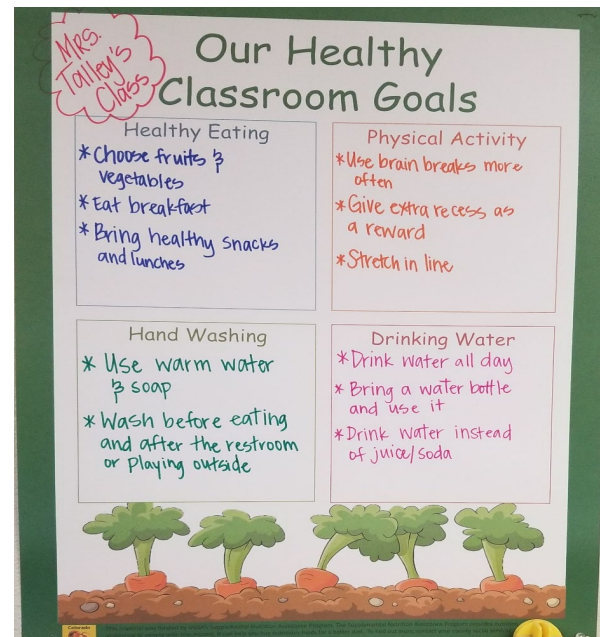 Mrs.
Talley's
Class
Our Healthy
Classroom Goals
Healthy Eating
* Choose fruits &
vegetables
* Eat breakfast
* Bring healthy snacks
and lunches
Physical Activity
* Use brain breaks more
often
* Give extra recess as
a reward
* Stretch in line
Hand Washing
* Use warm water
& soap
* Wash before eating
and after the restroom
or playing outside
Drinking Water
* Drink water all day
* Bring a water bottle
and use it
* Drink water instead
of juice/soda
Colorado